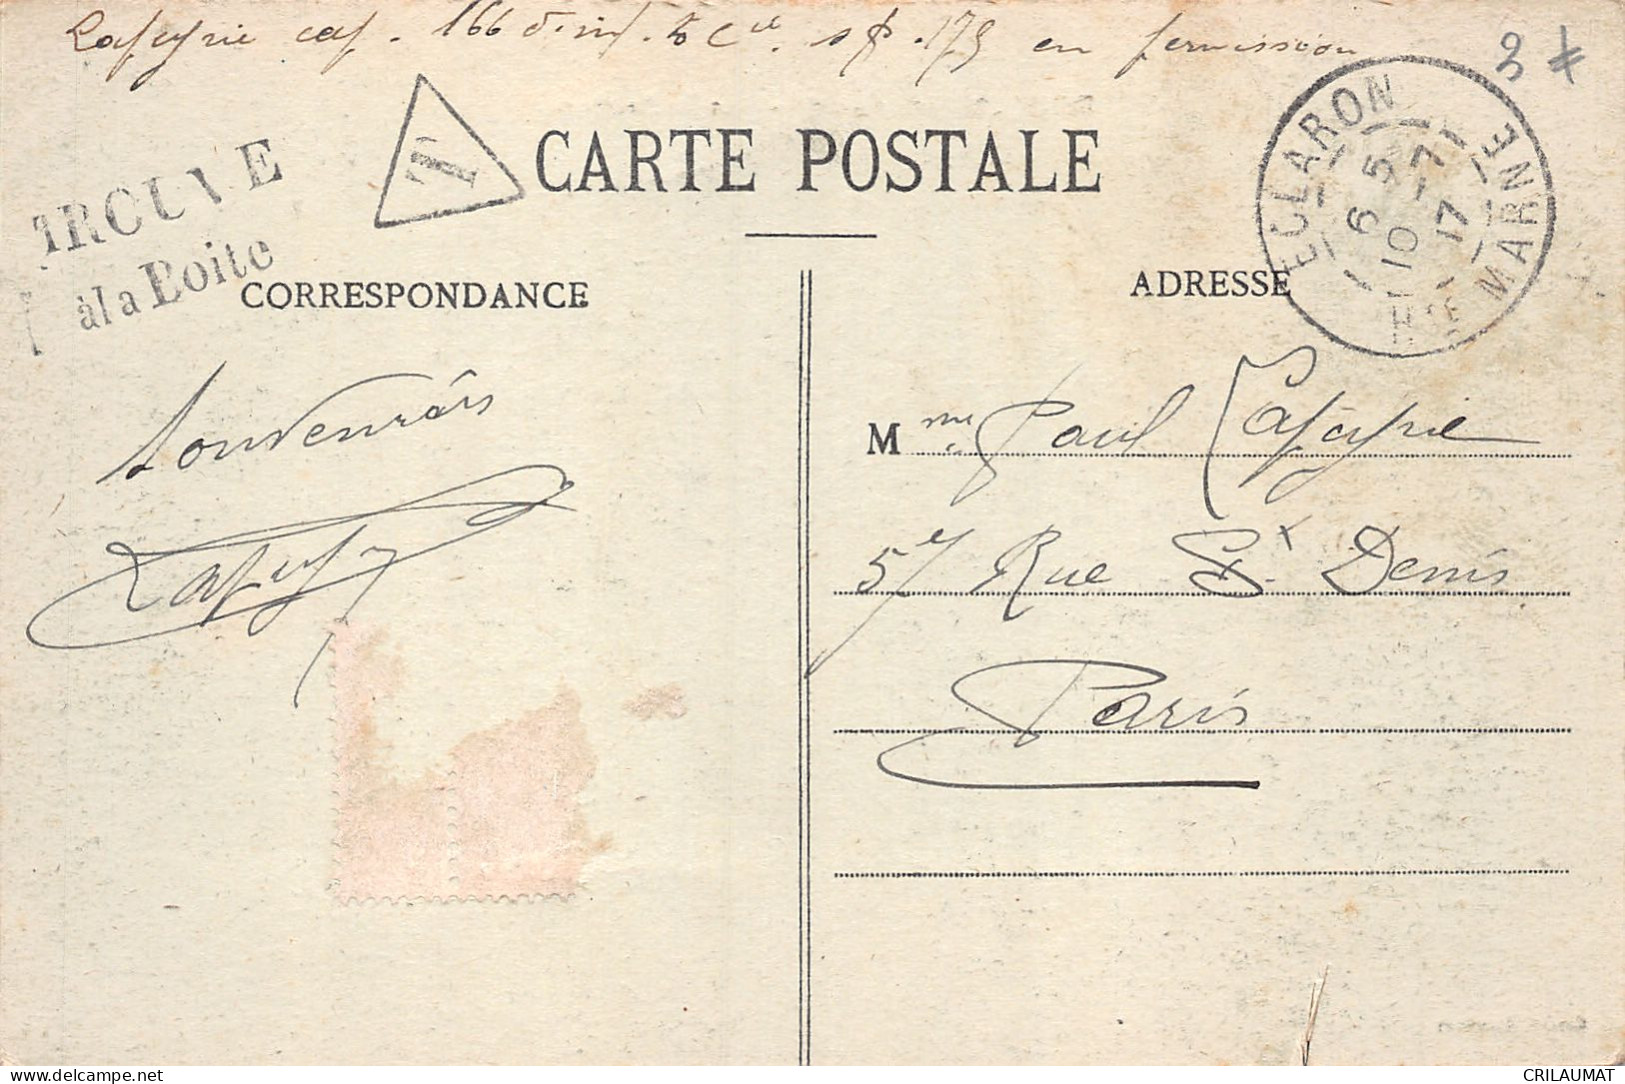 Lafeyrie cap. 166 d'inf. 5e Cie s p. 175 en permission
3
TROUVE
à la Boite
T
CARTE POSTALE
ECLARON
6 5
10 -7
17
Hte MARNE
CORRESPONDANCE
ADRESSE
Souvenirs
Lafey
Mme Paul Lafeyrie
57 Rue St Denis
Paris
delcampe.net
CRILAUMAT